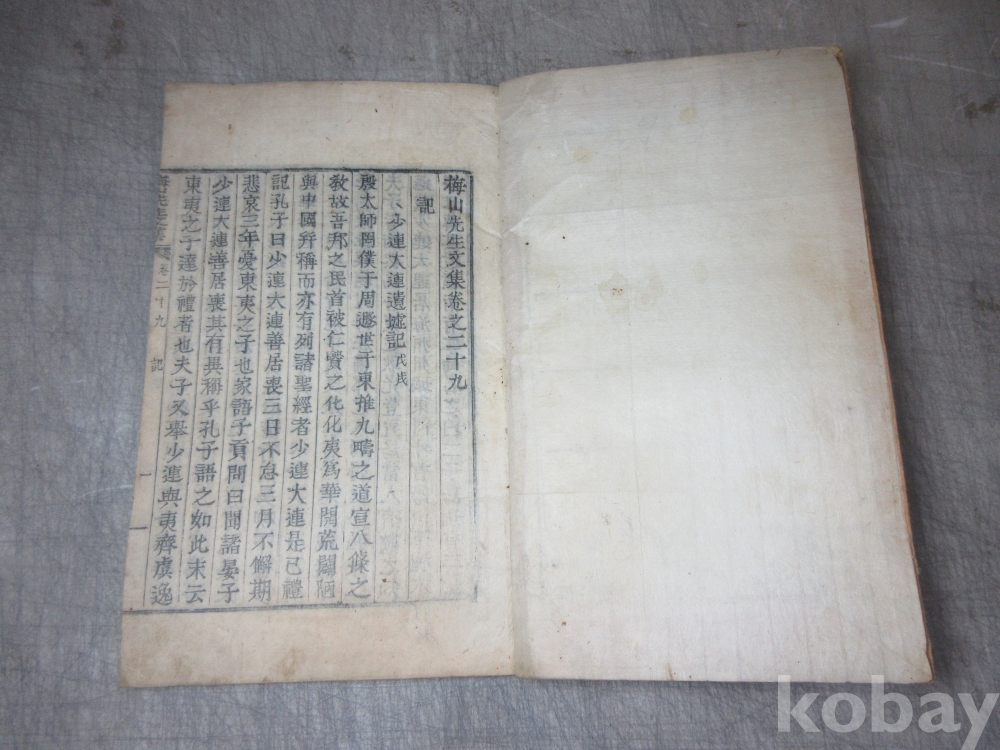 梅山先生文集卷之二十九
記
少連大連遺墟記 戊戌
殷太師罔僕于周遯世于東推九疇之道宣八條之
敎故吾邦之民首被仁賢之化化夷爲華開荒闢陋
與中國幷稱而亦有列諸聖經者少連大連是已禮
記孔子曰少連大連善居喪三日不怠三月不懈期
悲哀三年憂東夷之子也家語子貢問曰聞諸晏子
少連大連善居喪其有異稱乎孔子語之如此末云
東夷之子達於禮者也夫子又擧少連與夷齊虞逸
卷二十九 記 一
kobay